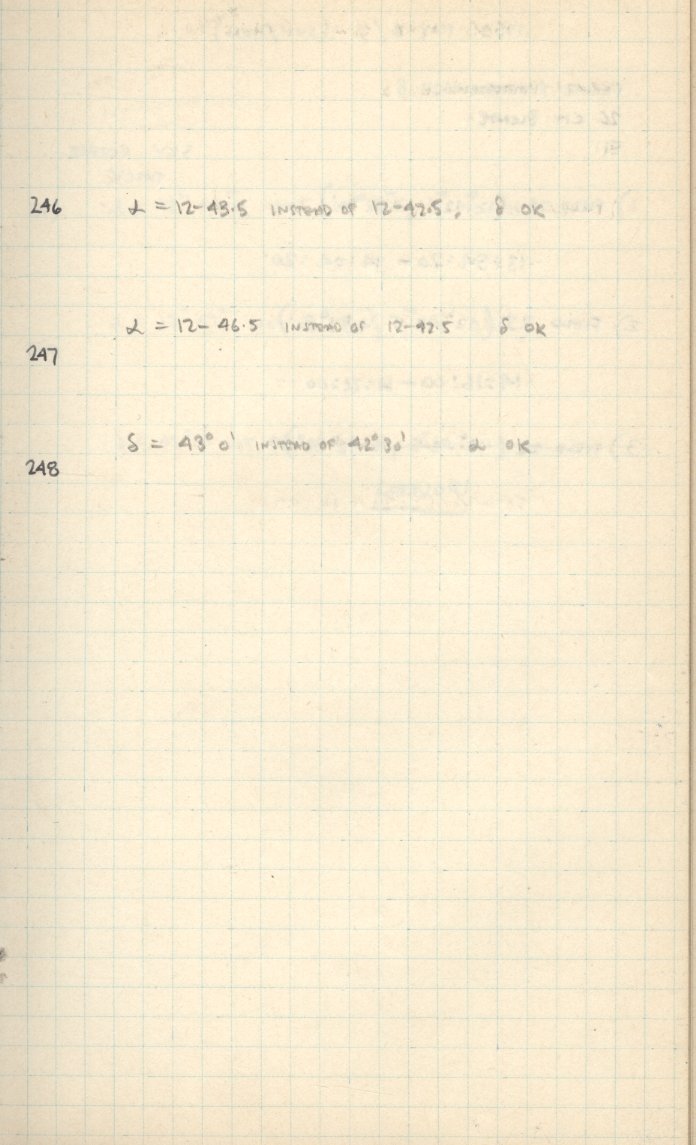 246 α = 12-43.5 INSTEAD OF 12-42.5, δ OK
α = 12-46.5 INSTEAD OF 12-42.5 δ OK
247
δ = 43° 0' INSTEAD OF 42° 30' α OK
248